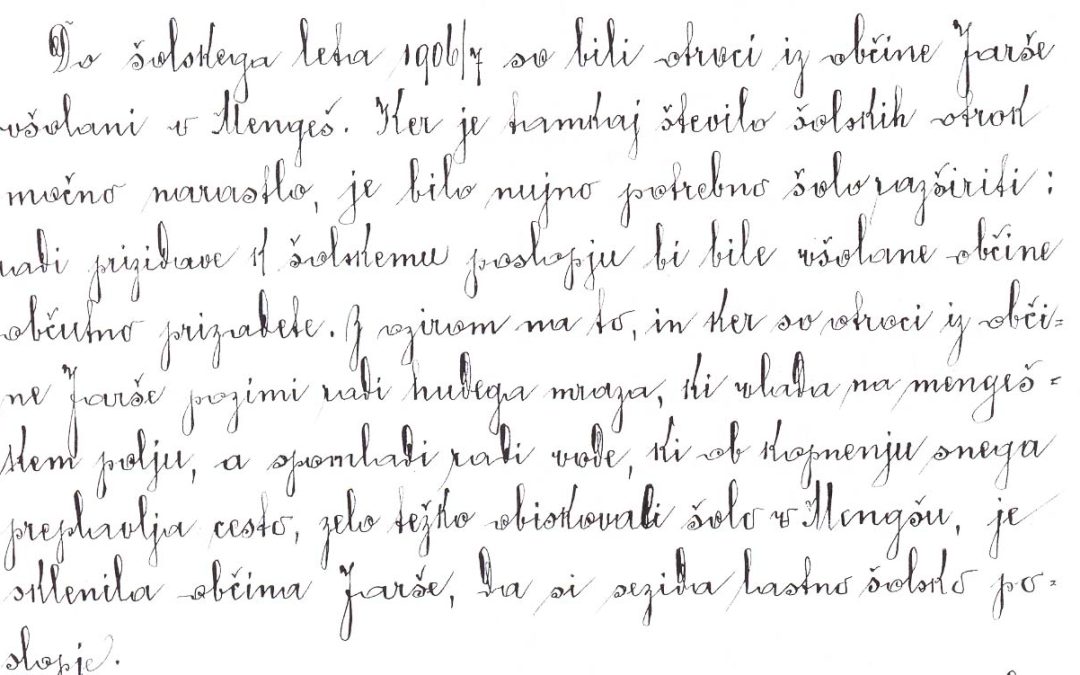 Do šolskega leta 1906/7 so bili otroci iz občine Jarše
všolani v Mengeš. Ker je tamkaj število šolskih otrok
močno narastlo, je bilo nujno potrebno šolo razširiti;
radi prizidave k šolskemu poslopju bi bile všolane občine
občutno prizadete. Z ozirom na to, in ker so otroci iz obči=
ne Jarše pozimi radi hudega mraza, ki vlada na mengeš=
kem polju, a spomladi radi vode, ki ob kopnenju snega
preplavlja cesto, zelo težko obiskovali šolo v Mengšu, je
sklenila občina Jarše, da si sezida lastno šolsko po=
slopje.